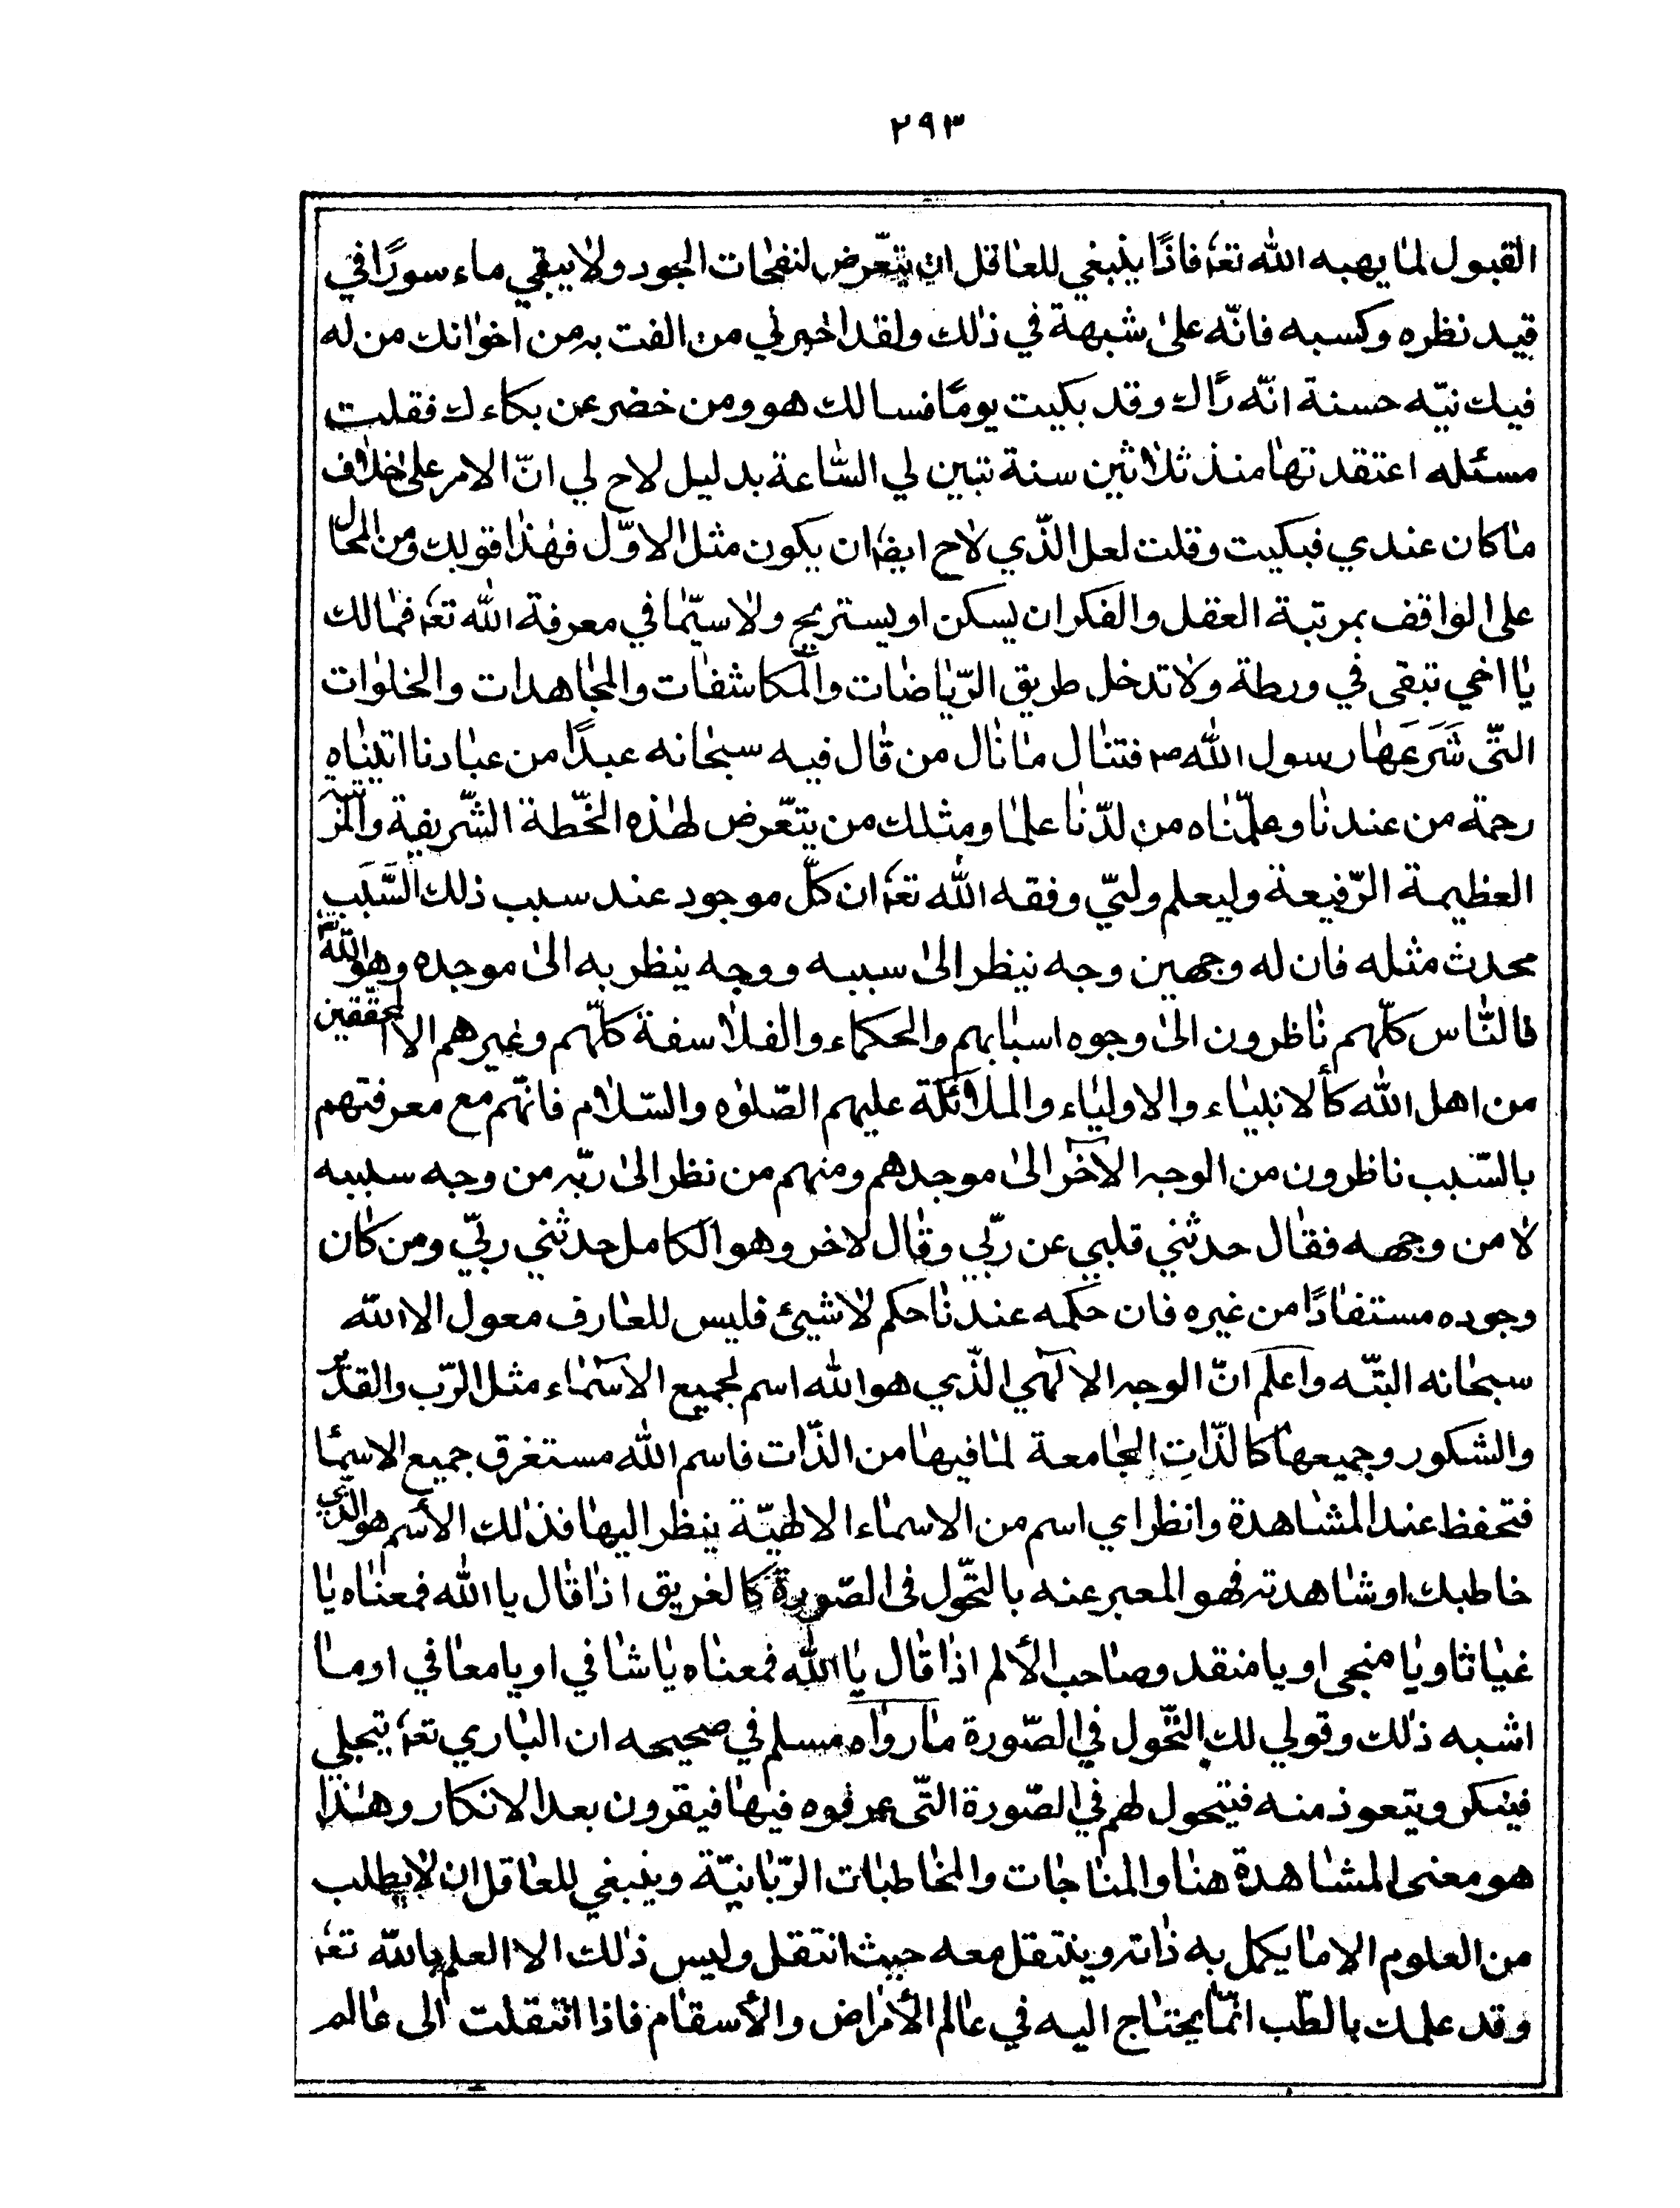 ٢٩٣
القبول لما يهبه الله تعٰه فاذًا ينبغي للعاقل ان يتعّرض لنفحات الجود ولا يبقي ماء سورًا في
قيد نظره وكسبه فانّه علىٰ شبهة في ذلك ولقد اخبرلي من الفت به من اخوانك من له
فيك نيّه حسنة انّه رَاك وقد بكيت يومًا فسالك هو ومن خضر عن بكاءك فقلت
مسئله اعتقدتها منذ ثلاثين سنة تبين لي السّاعة بدليل لاح لي انّ الامر على خلاف
ما كان عندي فبكيت وقلت لعل الذّي لاح ايضٰه ان يكون مثل الاوّل فهذا قولك ومن المحال
على الواقف بمرتبة العقل والفكر ان يسكن او يستريح ولا سيّما في معرفة الله تعٰه فمالك
يا اخي تبقى في ورطة ولا تدخل طريق الرّياضات والمكاشفات والمجاهدات والخلوات
التّى شَرَعَها رسول الله ص فتنال ما نال من قال فيه سبحانه عبدًا من عبادنا اتيناه
رحمة من عندنا وعلّمناه من لدّنا علما ومثلك من يتعّرض لهذه الخّطة الشّريفة والمَرتبة
العظيمة الرّفيعة وليعلم وليّي وفقه الله تعٰه ان كلّ موجود عند سبب ذلك السَّبَب
محدث مثله فان له وجهين وجه نيظر الىٰ سببه ووجه ينظر به الىٰ موجده وهو اللّه
فالنّاس كلّهم ناظرون الىٰ وجوه اسبابهم والحكماء والفلاسفة كلّهم وغيرهم الا المحقّقين
من اهل الله كألانبياء والاولياء والملائكة عليهم الصّلوٰه والسّلام فانّهم مع معرفتهم
بالسّبب ناظرون من الوجه الآخر الىٰ موجدهم ومنهم من نظر الىٰ ربّه من وجه سببيه
لا من وجهه فقال حدثني قلبي عن ربّي وقال لاخر وهو الكامل حدثني ربيّ ومن كان
وجوده مستفادًا من غيره فان حكمه عندنا حكم لا شيئ فليس للعارف معول الا الله
سبحانه البتّه واعلم انّ الوجه الالهي الذّي هو الله اسم لجميع الاسماء مثل الرّب والقدّير
والشكور وجميعها كالذّاتِ الجامعة لما فيها من الذّات فاسم الله مستغرق جميع الاسما
فتحفظ عند المشاهدة وانظر اي اسم من الاسماء الالهيّة ينظر اليها فذلك الأسم هو الذّي
خاطبك او شاهدته فهو المعبر عنه بالتحّول فى الصّورة كالغريق اذا قال يا الله فمعناه يا
غياثا ويا منجى او يا منقد وصاحب الألم اذا قال يا الله فمعناه يا شافي او يا معافي او ما
اشبه ذلك وقولي لك التحّول في الصّورة ما رواه مسلم في صحيحه ان الباري تعٰه يتجلي
فينكر ويتعوذ منه فيتحول لهم في الصّورة التّى عرفوه فيها فيقرون بعد الانكار وهذا
هو معنى المشاهدة هنا والمناجات والمخاطبات الرّبانيّة وينبغي للعاقل ان لا يطلب
من العلوم الا ما يكمل به ذاته وينتقل معه حيث انتقل وليس ذلك الا العلم بالله تعٰه
وقد علمك بالطّب انمّا يحتاج اليه في عالم الأمراض والأسقام فاذا انتقلت الى عالم